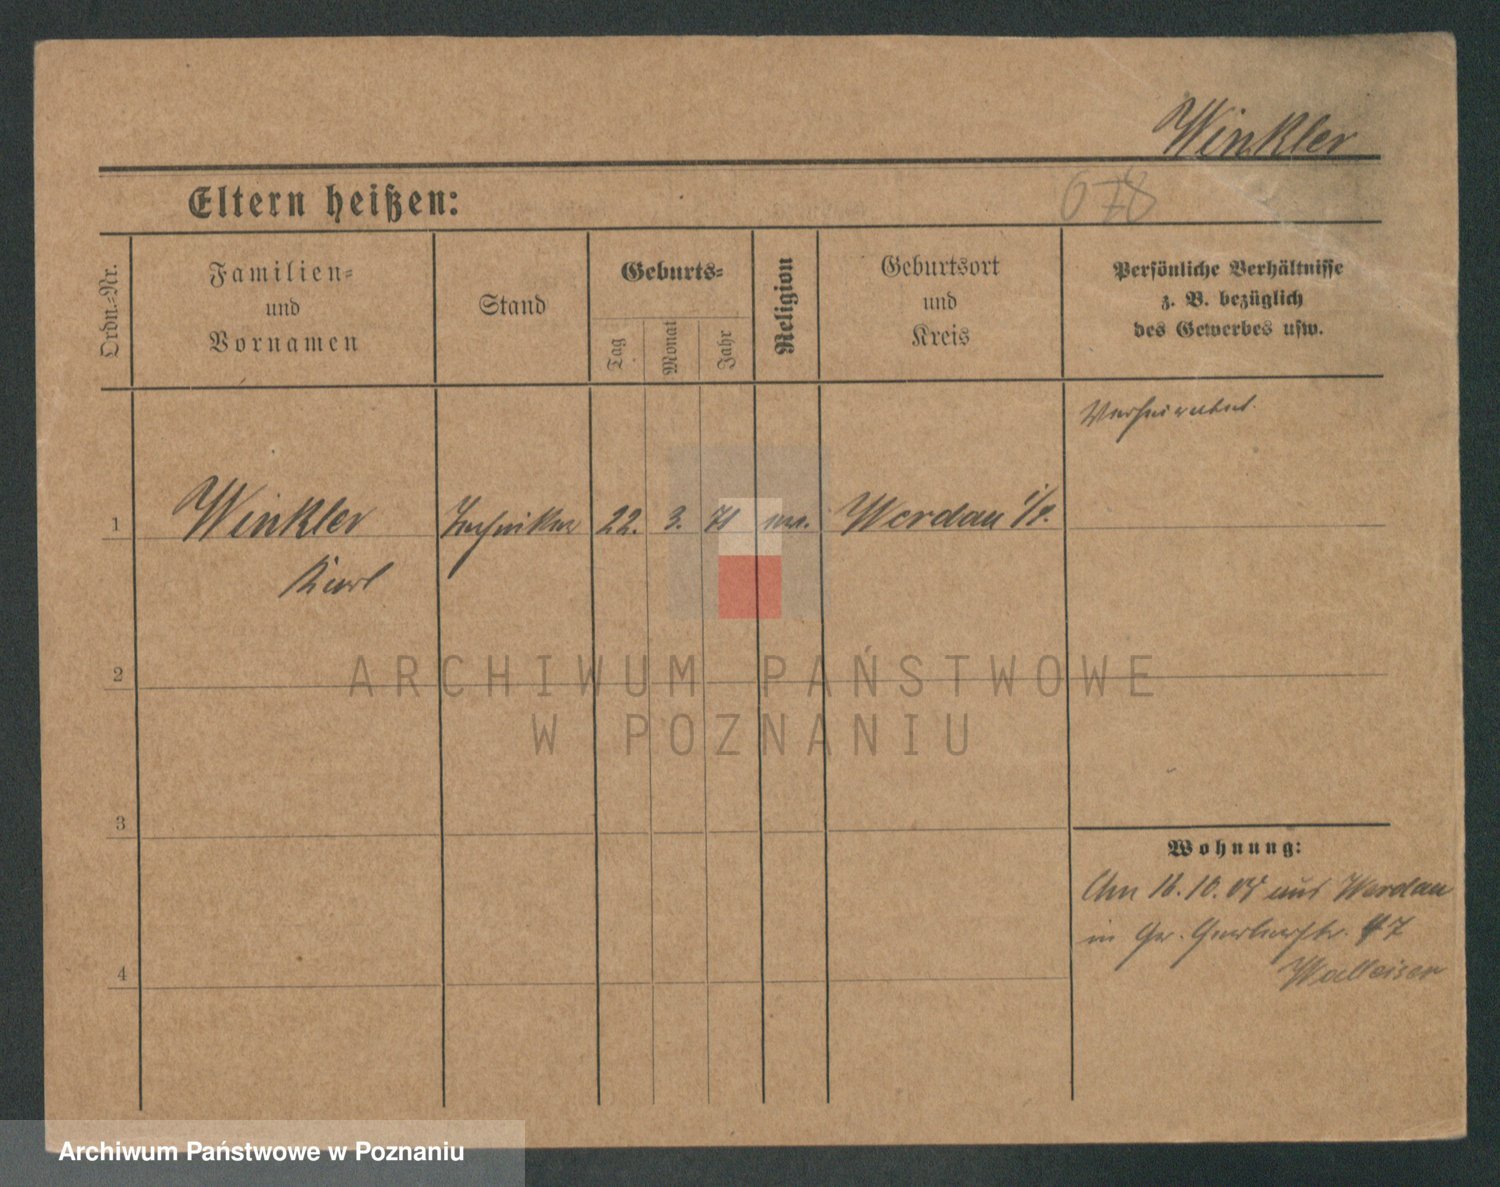 Winkler
Eltern heißen:
678
Ordn.=Nr.
Familien=
und
Vornamen
Stand
Geburts=
Tag
Monat
Jahr
Religion
Geburtsort
und
Kreis
Persönliche Verhältnisse
z. B. bezüglich
des Gewerbes usw.
Verheiratet.
1
Winkler
Karl
Techniker
22.
3.
71
Werdau i/S.
2
3
4
Wohnung:
Am 18.10.05 aus Werdau
in Gr. Gerberstr. 47
Walleiser
ARCHIWUM PAŃSTWOWE
W POZNANIU
Archiwum Państwowe w Poznaniu